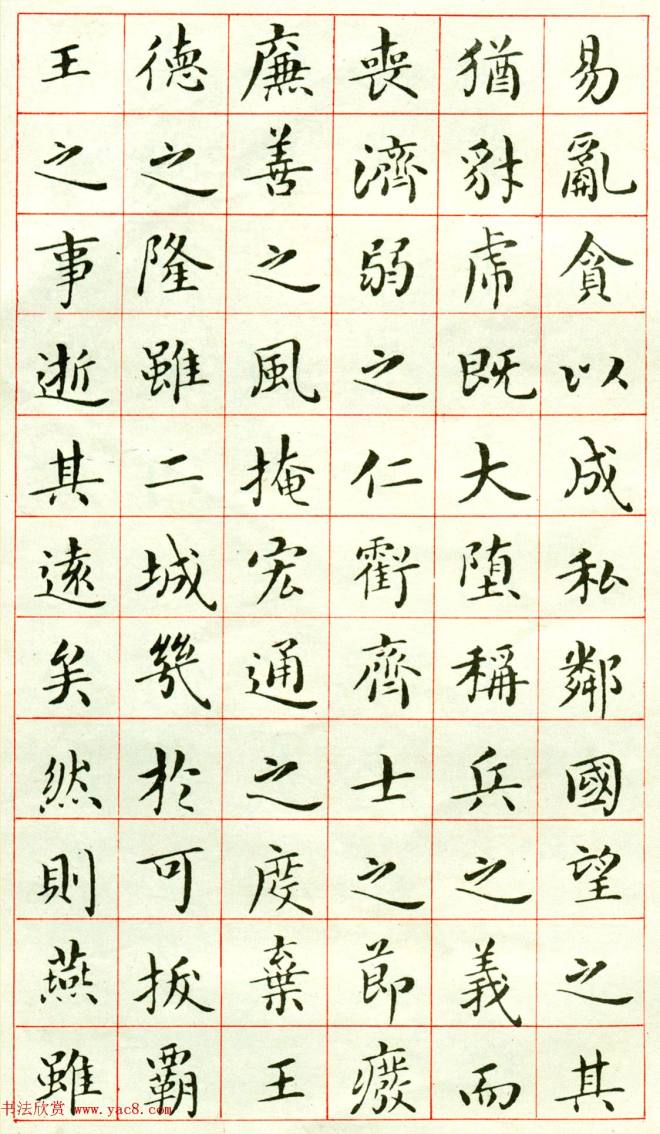 易亂貪以成私鄰國望之其
猶豺虎既大堕稱兵之義而
喪濟弱之仁虧齊士之節癈
廉善之風掩宏通之度棄王
德之隆雖二城幾於可拔霸
王之事逝其遠矣然則燕雖
书法欣赏 www.yac8.com